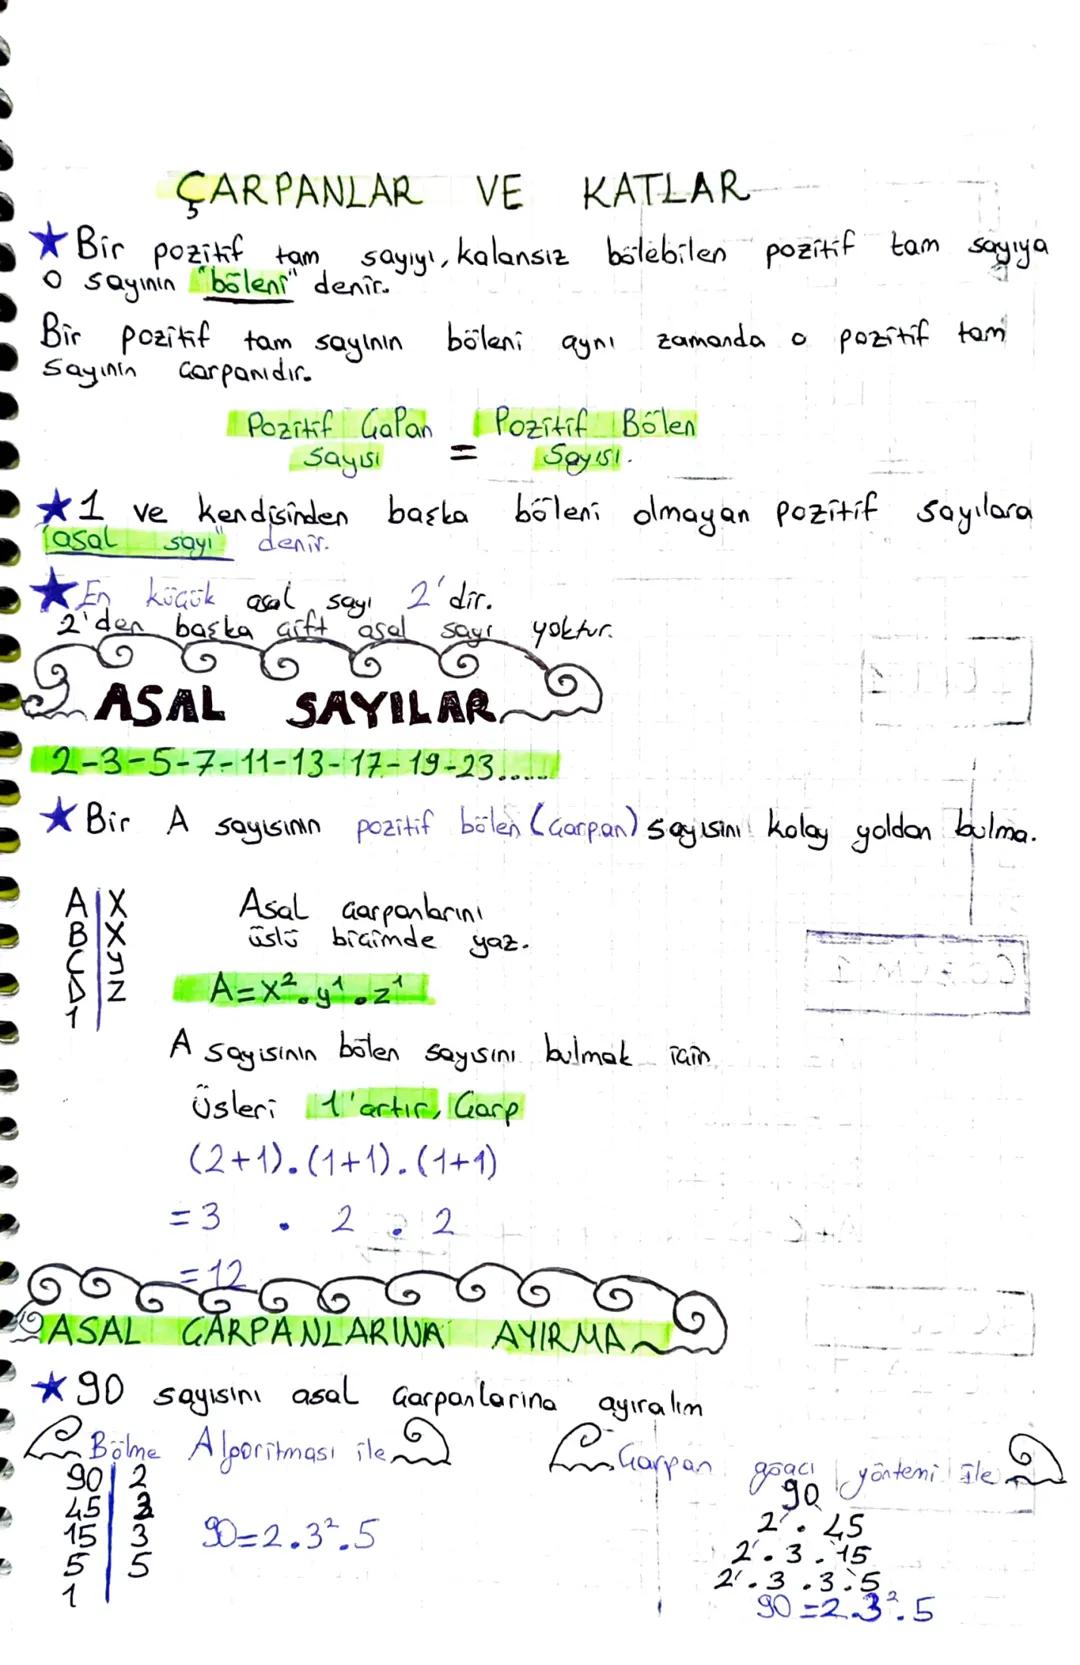 ÇARPANLAR VE KATLAR
★ Bir pozitif tam sayıyı, kalansız bölebilen pozitif tam sayıya
o sayının "böleni" denir.
Bir pozitif tam sayının böleni aynı zamanda o pozitif tam
sayının çarpanıdır.
Pozitif ÇaPan = Pozitif Bölen
Sayısı Sayısı.
★ 1 ve kendisinden başka böleni olmayan pozitif sayılara
"asal sayı" denir.
★ En küçük asal sayı 2'dir.
2'den başka çift asal sayı yoktur.
ASAL SAYILAR
2-3-5-7-11-13-17-19-23......
★ Bir A sayısının pozitif bölen (çarpan) sayısını kolay yoldan bulma.
A | X
B | X
C | y
D | Z
1 |
Asal çarpanlarını
üslü biçimde yaz.
A=x².y¹.z¹
A sayısının bölen sayısını bulmak için
Üsleri 1'artır, Çarp
(2+1).(1+1).(1+1)
=3 . 2 . 2
=12
ASAL ÇARPANLARINA AYIRMA
★ 90 sayısını asal çarpanlarına ayıralım
Bölme Algoritması ile
90 | 2
45 | 3
15 | 3
5 | 5
1 |
90=2.3².5
Çarpan ağacı yöntemi ile
90
2 . 45
2 . 3 . 15
2 . 3 . 3 . 5
90=2.3².5